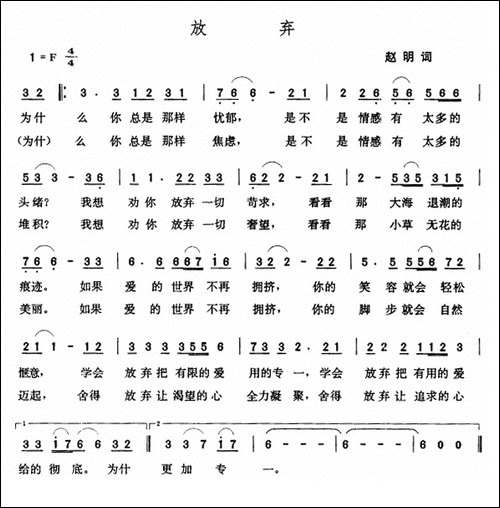 放 弃
1=F 4/4 赵明词
3 2 ‖: 3 · 3 1 2 3 1 | 7 6 6 - 2 1 | 2 2 6 5 6 5 6 6 |
为什 么 你 总是 那样 忧郁, 是不 是 情感 有 太多的
(为什) 么 你 总是 那样 焦虑, 是不 是 情感 有 太多的
5 3 3 - 3 6 | 1 1 · 2 2 2 1 | 6 2 2 · 2 1 | 2 - 5 3 5 3 1 5 |
头绪? 我想 劝你 放弃 一切 苛求, 看看 那 大海 退潮的
堆积? 我想 劝你 放弃 一切 奢望, 看看 那 小草 无花的
7 6 6 - 3 3 | 6 · 6 6 6 7 1 6 | 3 2 2 - 2 2 | 3 · 5 5 5 6 2 2 |
痕迹。 如果 爱 的 世界 不再 拥挤, 你的 笑 容就会 轻松
美丽。 如果 爱 的 世界 不再 拥挤, 你的 脚 步就会 自然
2 1 1 - 1 2 | 3 3 3 3 5 5 5 6 | 6 1 2 1 1 2 | 2 2 2 1 1 2 3 |
惬意, 学会 放弃把 有限的 爱 用的专一,学会 放弃把 有用的 爱
迈起, 舍得 放弃让 渴望的 心 全力凝聚,舍得 放弃让 追求的 心
1 2
3 3 1 7 6 6 3 2 :‖ 3 3 7 1 7 | 6 - - - | 6 - - - | 6 0 0 ‖
给的 彻底。 为什 更加 专 一。